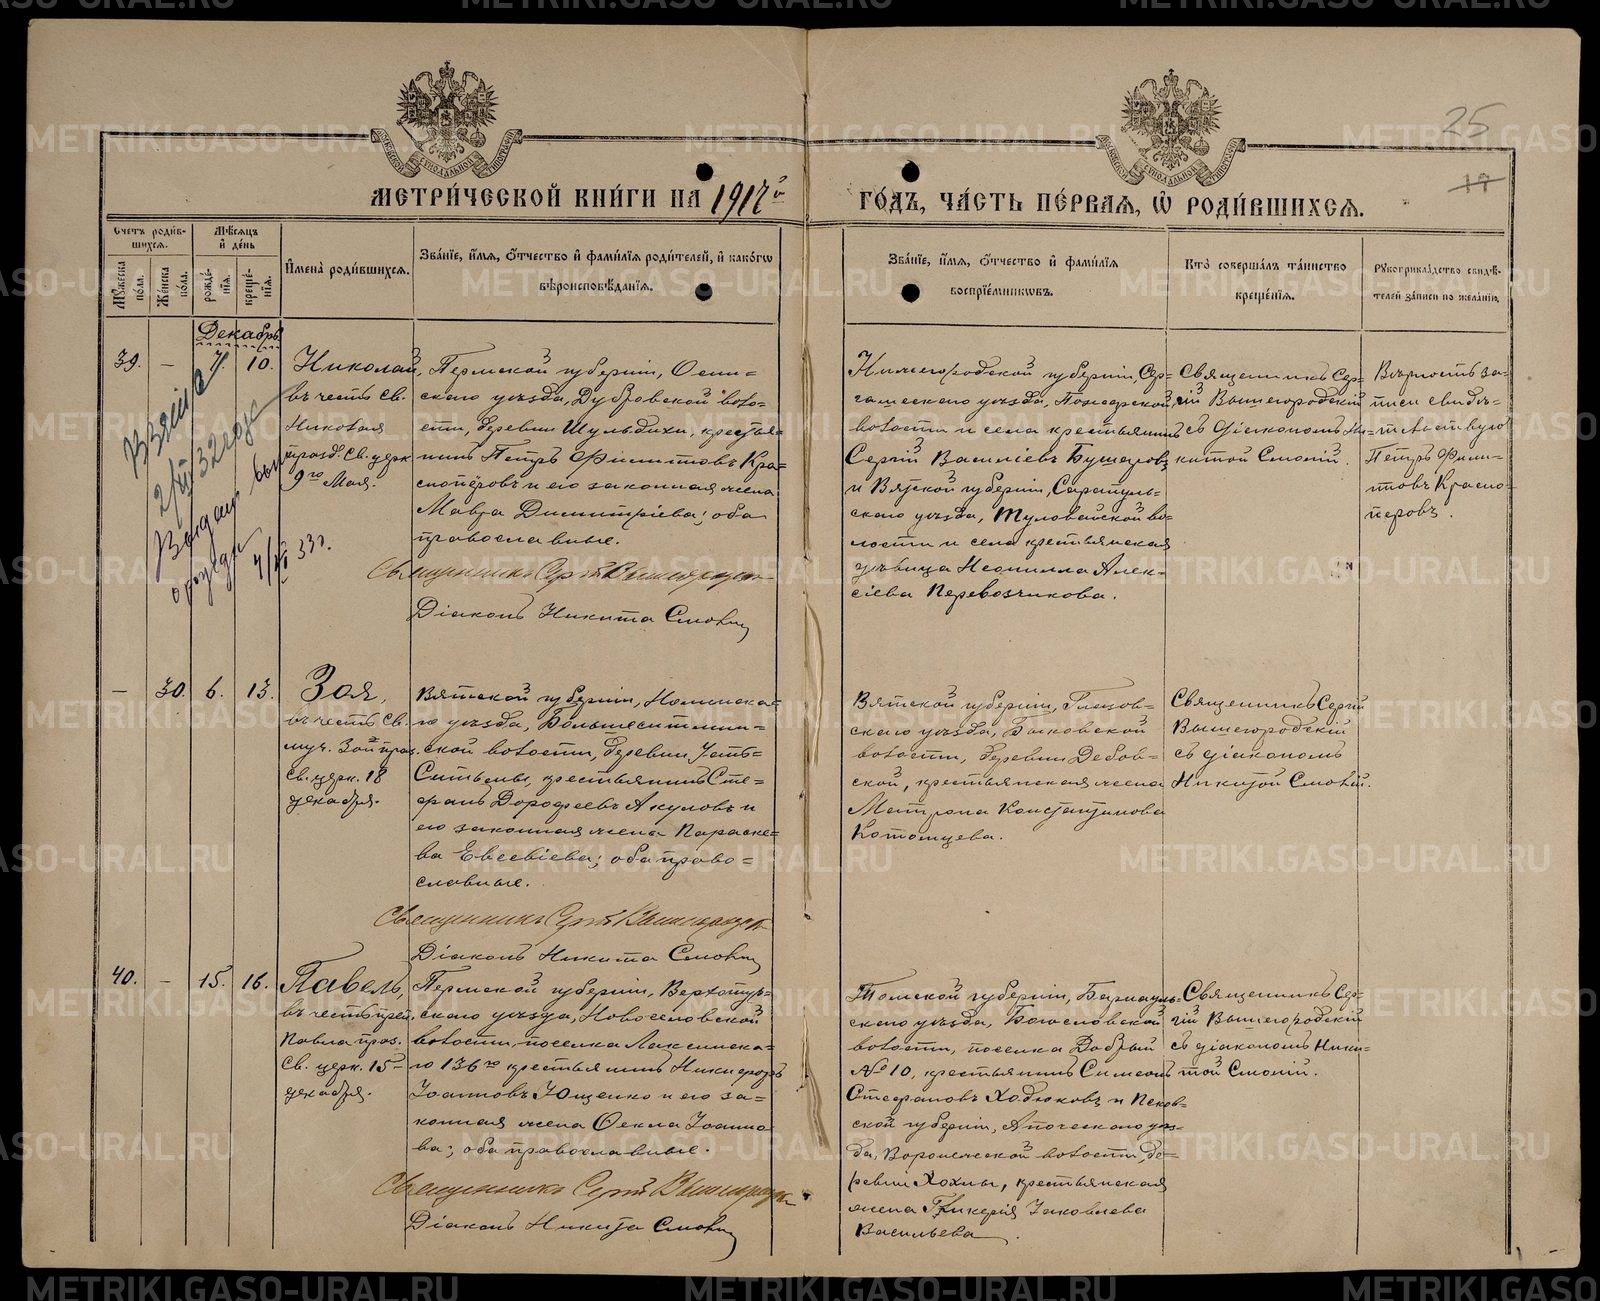 25
17
МОСКОВСКОЙ СѴНОДАЛЬНОЙ ТИПОГРАФІИ
МОСКОВСКОЙ СѴНОДАЛЬНОЙ ТИПОГРАФІИ
МЕТРИ́ЧЕСКОЙ КНИ́ГИ НА 1917й
ГО́ДЪ, ЧА́СТЬ ПЕ́РВАЯ, Ѽ РОДИ́ВШИХСЯ.
Счетъ роди́в-
шихся.
Мꙋ́жеска по́ла.
Же́нска по́ла.
Мѣ́сяцъ
и҆ де́нь
рожде́-
нїѧ.
креще́-
нїѧ.
И҆мена̀ роди́вшихсѧ.
Зва́нїе, и҆́мѧ, ѻ҆́тчество и҆ фами́лїѧ роди́телей, и҆ како́гѡ
вѣроисповѣ́данїѧ.
Зва́нїе, и҆́мѧ, ѻ҆́тчество и҆ фами́лїѧ
воспрїе́мникѡвъ.
Кто̀ соверша́лъ та́инство
креще́нїѧ.
Рꙋкоприкла́дство свидѣ́-
телей за́писи по жела́нїю.
Декабрь
39.
—
7.
10.
Николай,
въ честь св.
Николая
празд. св. церк
9го Мая.
Пермской губерніи, Осин-
скаго уѣзда, Дубровской воло-
сти, деревни Шульдихи, крестья-
нинъ Петръ Филиповъ Кра-
сноперовъ и его законная жена
Мавра Димитріева; оба
православные.
Священникъ Сергій Вышегородскій
Діаконъ Никита Смолій
Нижегородской губерніи, Сер-
гачскаго уѣзда, Пожарской
волости и села крестьянинъ
Сергій Василіевъ Бушаровъ
и Вятской губерніи, Сарапуль-
скаго уѣзда, во-
лости и села крестьянская
дѣвица Неонилла Алек-
сіева Перевозчикова.
Священникъ Сер-
гій Вышегородскій
съ діакономъ Ни-
китой Смолій.
Вѣрность за-
писи свидѣ-
тельствую
Петръ Фили-
повъ Красно-
перовъ.
2/III 32 года
Выдан
4/XI 33г.
—
30.
6.
13.
Зоя,
въ честь св.
муч. Зои праз.
св. церк. 18
декабря.
Вятской губерніи, Нолинска-
го уѣзда, Большеситмин-
ской волости, деревни Усть-
Ситьмы, крестьянинъ Сте-
фанъ Дорофеевъ Акуловъ и
его законная жена Параске-
ва Евсевіева; оба право-
славные.
Священникъ Сергій Вышегородскій
Діаконъ Никита Смолій
Вятской губерніи, Глазов-
скаго уѣзда,
волости, деревни Дебов-
ской, крестьянская жена
Матрона Константинова
Котомцева.
Священникъ Сергій
Вышегородскій
съ діакономъ
Никитой Смолій.
40.
—
15.
16.
Павелъ,
въ честь преп.
Павла праз.
св. церк. 15го
декабря.
Пермской губерніи, Верхотур-
скаго уѣзда, Новоселовской
волости, поселка Лаксинска-
го 136го крестьянинъ Никифоръ
Іоанновъ Ющенко и его за-
конная жена Фекла Іоанно-
ва; оба православные.
Священникъ Сергій Вышегородскій
Діаконъ Никита Смолій
Томской губерніи, Барнауль-
скаго уѣзда, Богословской
волости, поселка Добрый
№ 10, крестьянинъ Симеонъ
Стефановъ Ходюковъ и Псков-
ской губерніи, Опочскаго уѣз-
да, Воронецкой волости, де-
ревни Хохлы, крестьянская
жена Гликерія Іаковлева
Васильева.
Священникъ Сер-
гій Вышегородскій
съ діакономъ Ники-
той Смолій.
METRIKI.GASO-URAL.RU